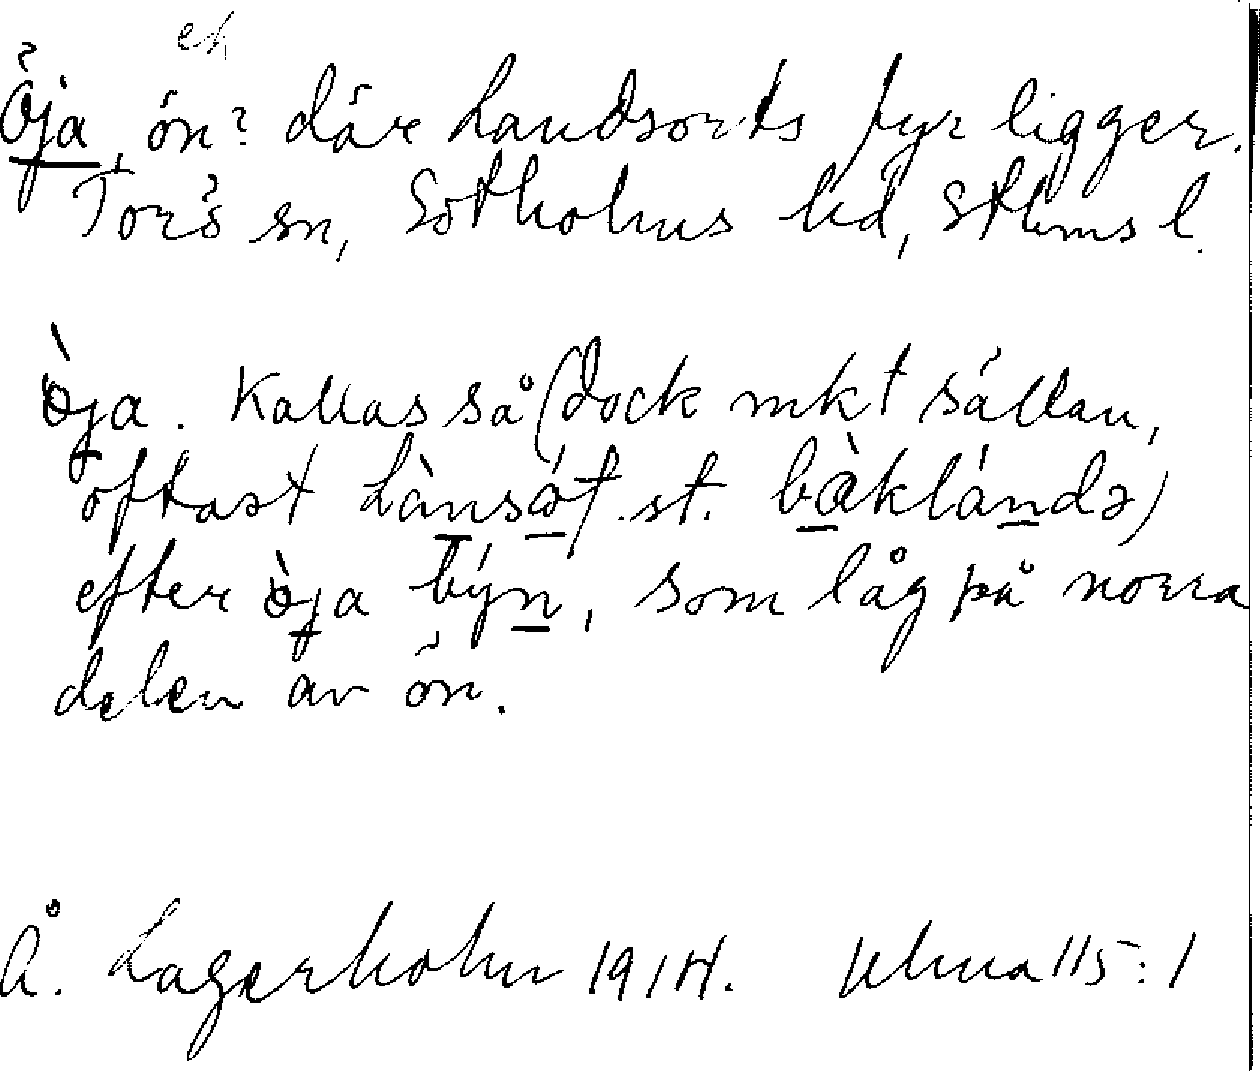 eh
Öja, ön? där Landsorts fyr ligger.
Torö sn, Sotholms hd, Sthms l.
ö̀ja. Kallas så (dock mkt sällan,
oftast lànsót. st. bàklándə)
efter ö̀ja býn, som låg på norra
delen av ön.
Å. Lagerholm 1914. Ulma 115:1